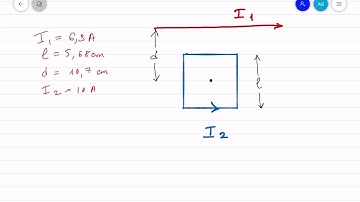 I₁
I₁ = 6,3 A
l = 5,68 cm
d = 10,7 cm
I₂ = 10 A
d
l
I₂
AS